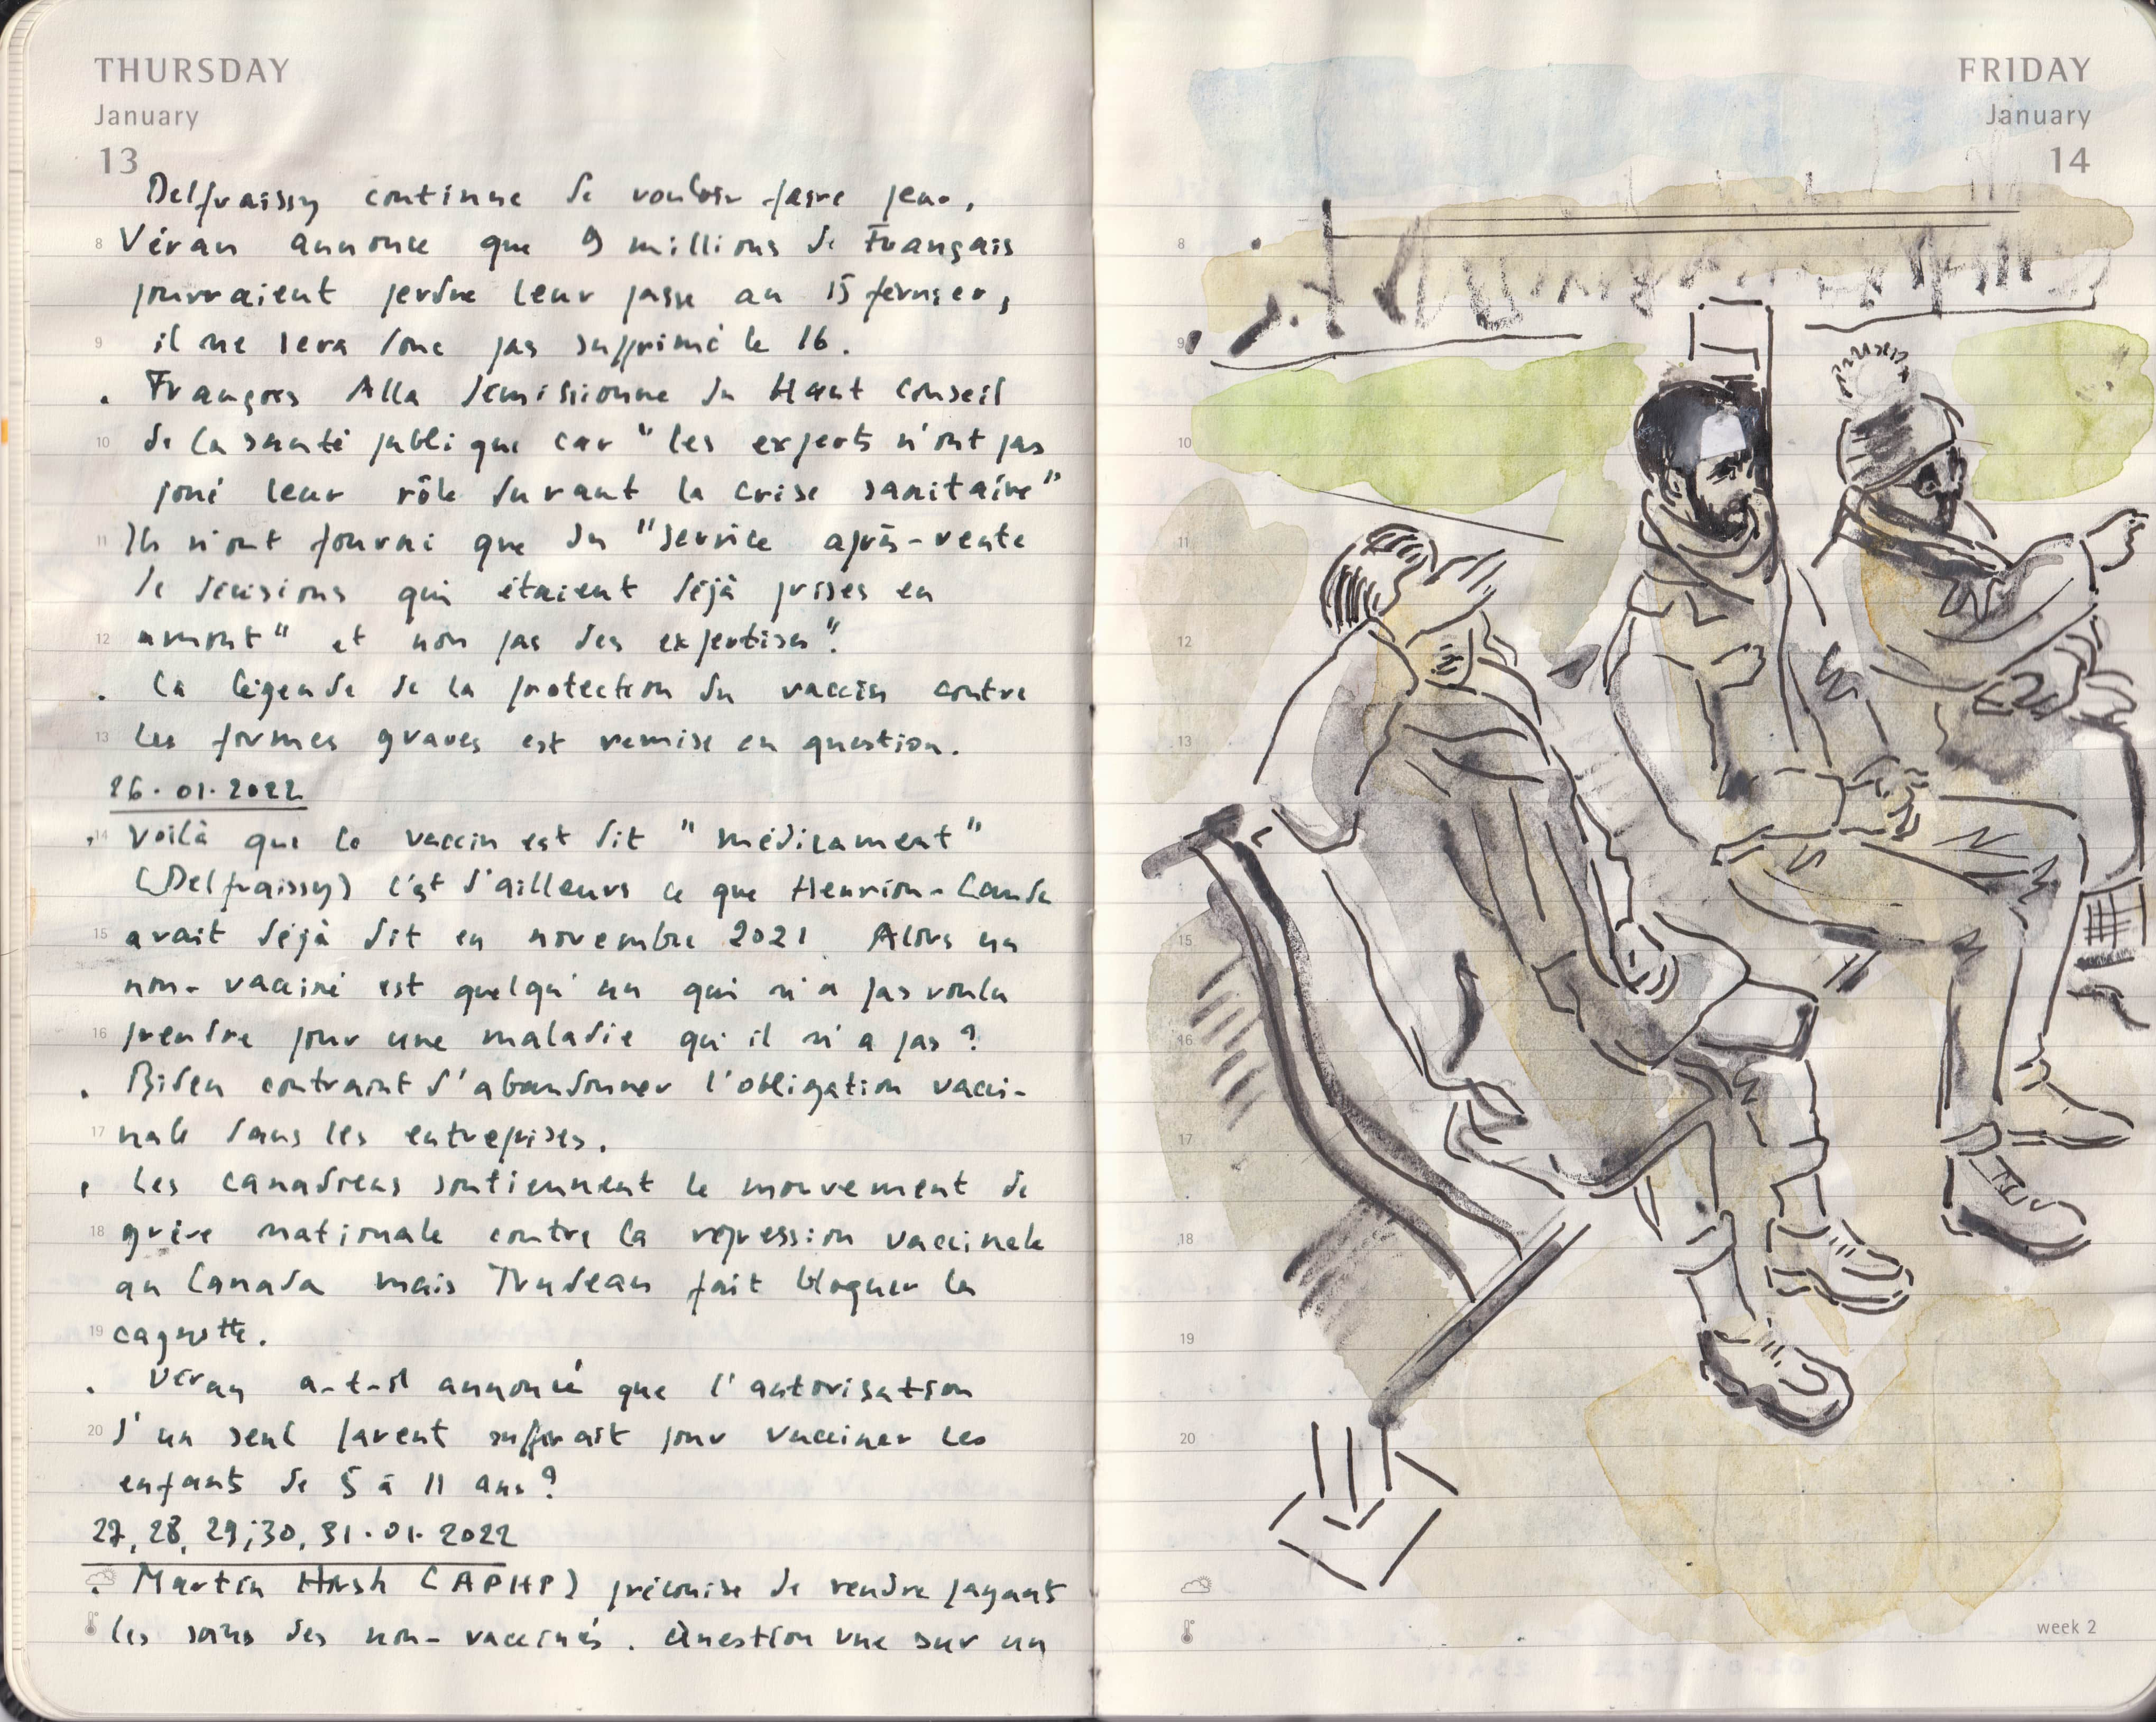 THURSDAY
January
13
Delfraissy continue de vouloir faire peur,
8 Véran annonce que 9 millions de Français
pourraient perdre leur passe au 15 février,
9 il ne sera donc pas supprimé le 16.
. François Alla démissionne du Haut Conseil
10 de la santé publique car "les experts n'ont pas
joué leur rôle durant la crise sanitaire"
11 Ils n'ont fourni que du "service après-vente
de décisions qui étaient déjà prises en
12 amont" et non pas des expertises".
. La légende de la protection du vaccin contre
13 les formes graves est remise en question.
26.01.2022
14 . Voilà que le vaccin est dit "médicament"
(Delfraissy) c'est d'ailleurs ce que Henrion-Caude
15 avait déjà dit en novembre 2021 Alors un
non-vacciné est quelqu'un qui n'a pas voulu
16 prendre pour une maladie qu'il n'a pas ?
. Biden contraint d'abandonner l'obligation vacci-
17 nale dans les entreprises.
. Les canadiens soutiennent le mouvement de
18 grève nationale contre la répression vaccinale
au Canada mais Trudeau fait bloquer la
19 cagnotte.
. Véran a-t-il annoncé que l'autorisation
20 d'un seul parent suffirait pour vacciner les
enfants de 5 à 11 ans ?
27, 28, 29, 30, 31.01.2022
. Martin Hirsh (APHP) préconise de rendre payants
les soins des non-vaccinés. Question vue sur un
FRIDAY
January
14
8
9
10
11
12
13
15
16
17
18
19
20
week 2